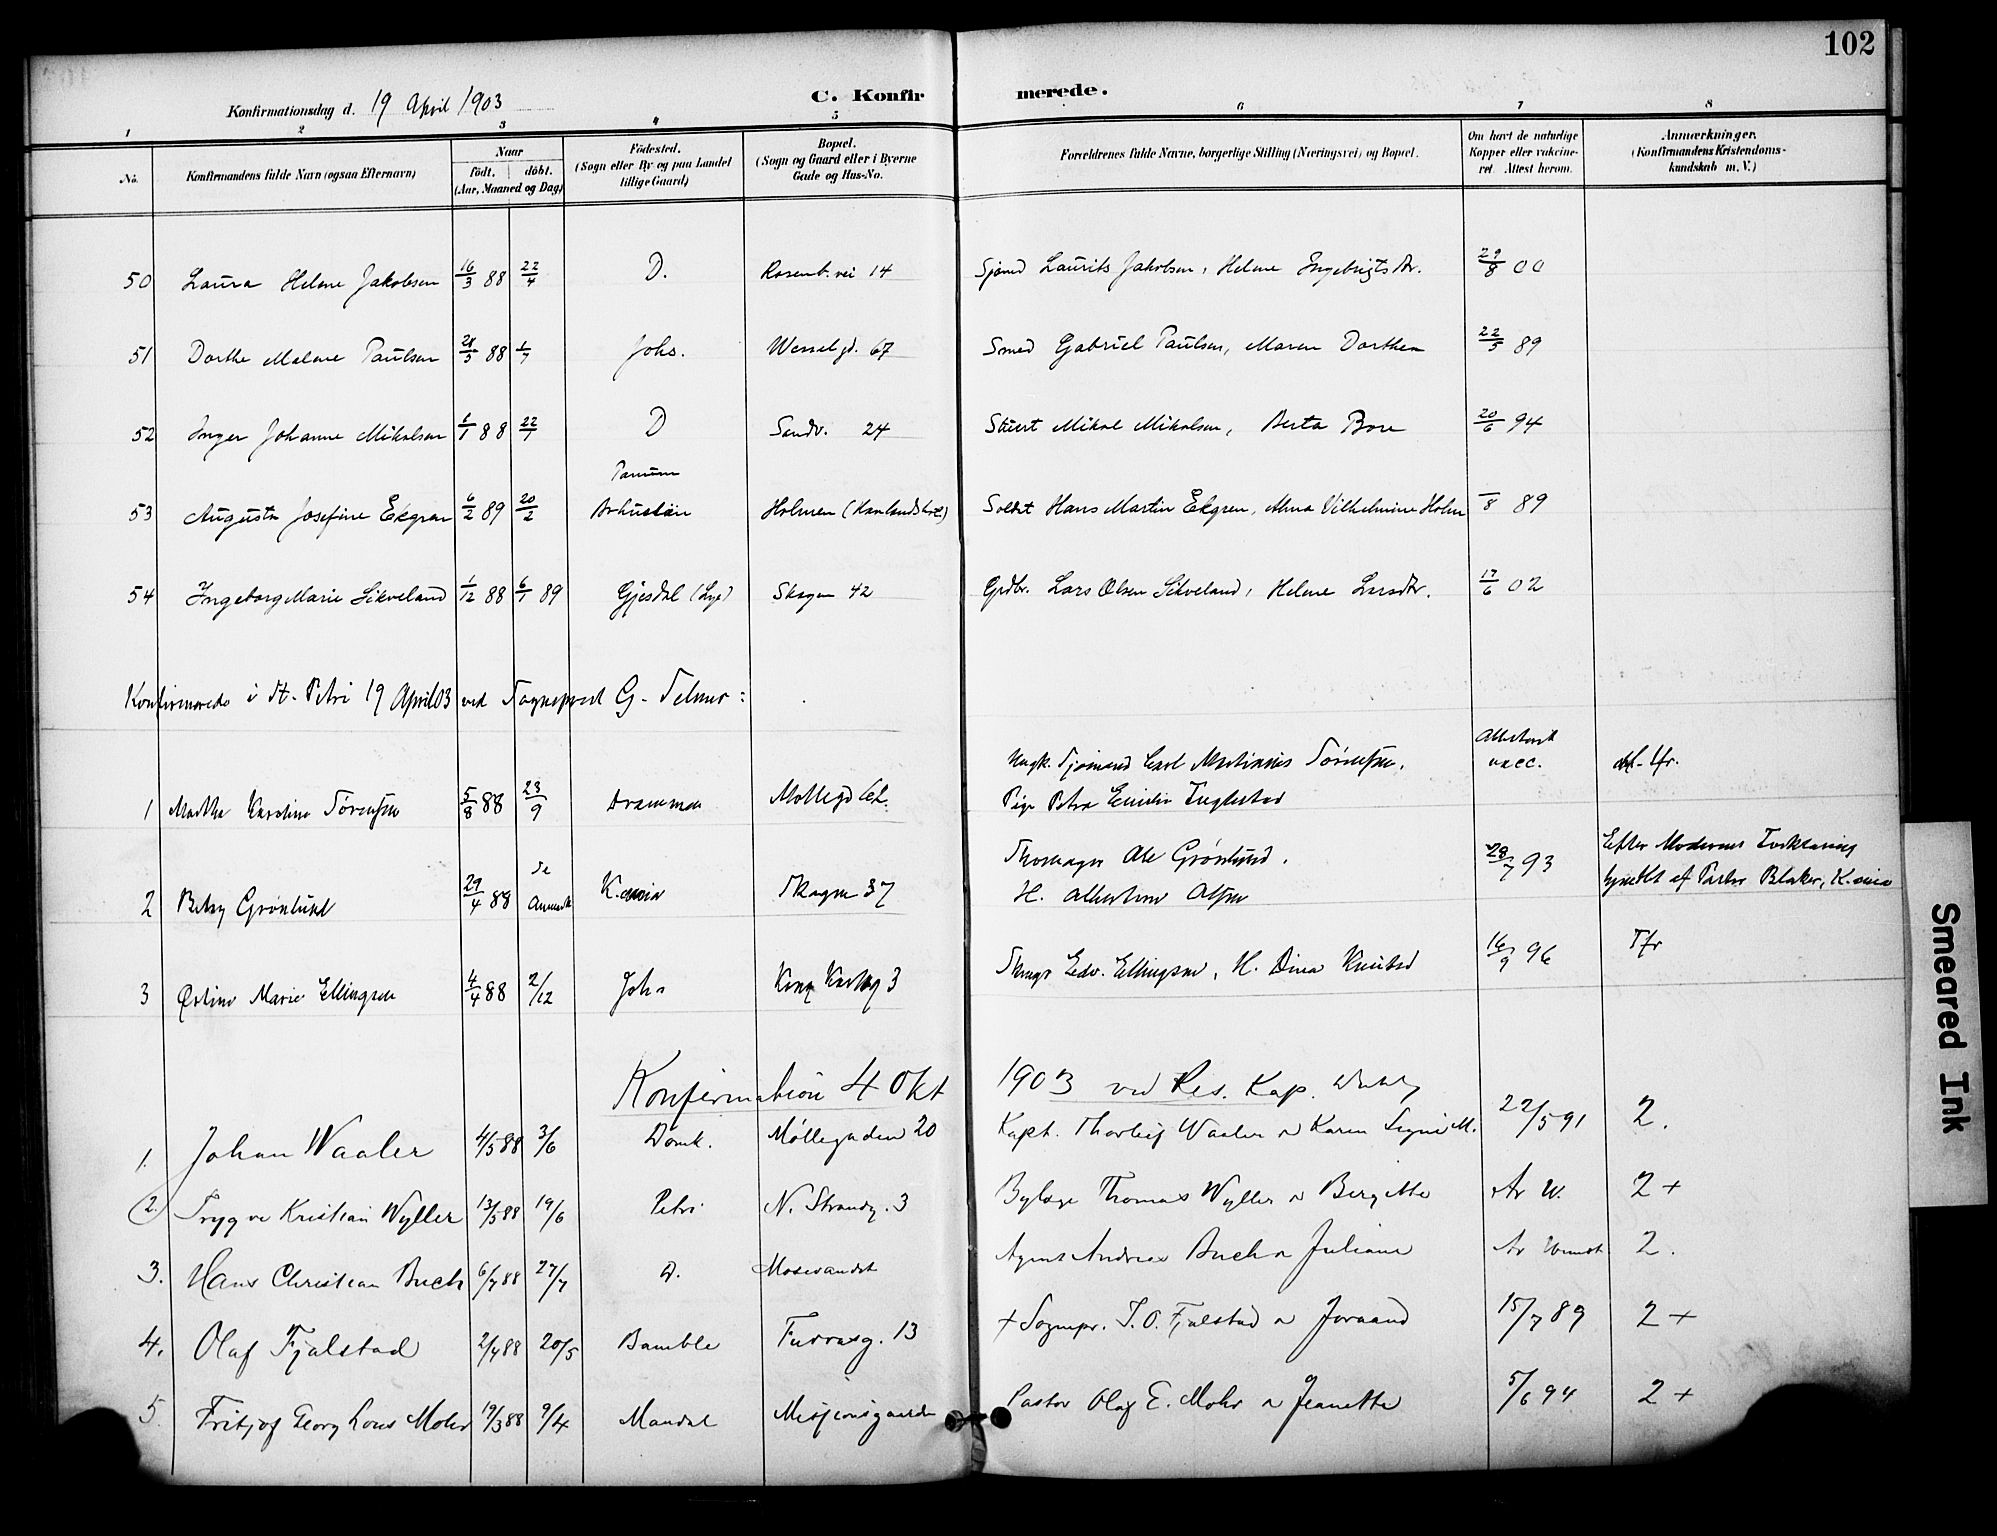 102
Konfirmationsdag d. 19 April 1903
C. Konfirmerede.
1 2 3 4 5 6 7 8
No. Konfirmandens fulde Navn (ogsaa Efternavn) Naar født. døbt. (Aar, Maaned og Dag) Fødested. (Sogn eller By og paa Landet tillige Gaard) Bopæl. (Sogn og Gaard eller i Byerne Gade og Hus-No. Forældrenes fulde Navne, borgerlige Stilling (Næringsvei) og Bopæl. Om havt de naturlige Kopper eller vakcineret. Attest herom. Anmærkninger. (Konfirmandens Kristendomskundskab m. V.)
50 Laura Helene Jakobsen 16/3 88 22/4 D. Rosenb. vei 14 Sjømd Laurits Jakobsen, Helene Ingebrigtsdtr. 29/8 00
51 Dorthe Malene Paulsen 28/5 88 1/7 Johs. Wesselgd. 67 Smed Gabriel Paulsen, Maren Dorthea 22/5 89
52 Inger Johanne Mikalsen 6/1 88 22/1 D Sandv. 24 Stuert Mikal Mikalsen, Berta Bore 20/6 94
Tanum
53 Augusta Josefine Ekgren 6/2 89 20/2 Bohuslän Holmen Soldat Hans Martin Ekgren, Alma Vilhelmine Holm /8 89
54 Ingeborg Marie Sikveland 1/12 88 6/1 89 Gjesdal (Lye) Skagen 42 Grdbr. Lars Olsen Sikveland, Helene Larsdtr. 17/6 02
Konfirmerede i St. Petri 19 April 03 ved Sogneprest G.
Attesteret
1 Martha Karoline Sørensen 5/8 88 23/9 Drammen Møllegd Ugk. Sjømand Carl Martinius Sørensen, vacc.
Pige Petra Emilie
2 Betsy Grønlund 29/4 88 Se Anmerk K.ania Skagen 37 Skomager Abr Grønlund. 28/7 93 Efter Moderens Forklaring
H. Albertine Olsen af Pastor Blaker, K.ania
3 Østine Marie Ellingsen 4/4 88 2/12 Johs Kong Karlsg 3 Skmgr Edv. Ellingsen, H. Dina Knutsd 16/9 96 Tfr
Konfirmation 4 Okt 1903 ved Res. Kap.
1. Johan Waaler 4/5 88 3/6 Domk. Møllegaden 20 Kapt. Thorleif Waaler o Karen Signe M. 22/5 91 2.
2. Trygve Kristian Wyller 13/5 88 19/6 Petri N. Strandg. 3 Bylæge Thomas Wyller o Bergitte Av W. 2+
3. Hans Christian Buch 6/7 88 27/7 D. Mosevandet Agent Andreas Buch o Juliane Av 2.
4. Olaf Fjalstad 2/4 88 20/5 Bamble Furrasg. 13 + Sognepr. T. O. Fjalstad o Joraand 15/7 89 2+
5. Fritjof Georg Louis Mohr 19/3 88 9/4 Mandal Misjonsgaarden Pastor Olaf E. Mohr o Jeanette 5/6 94 2+
Smeared Ink